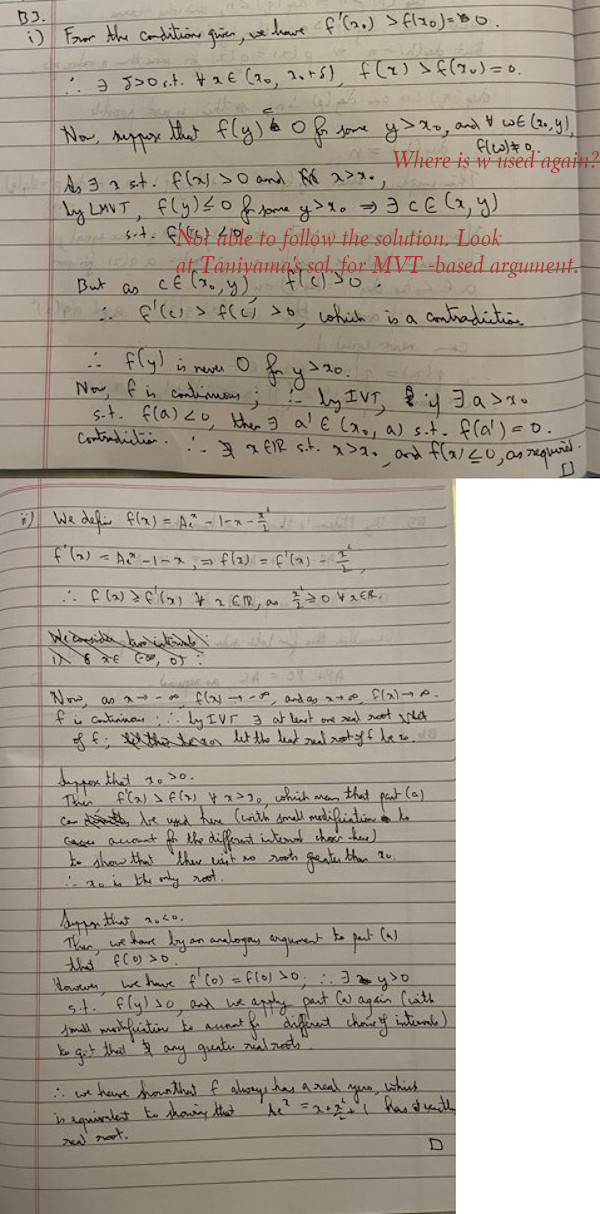 B3.
i) From the condition given, we have f'(x₀) > f(x₀) = 0.
∴ ∃ δ>0 s.t. ∀ x ∈ (x₀, x₀+δ), f(x) > f(x₀) = 0.
Now, suppose that f(y) ≤ 0 for some y > x₀, and ∀ w ∈ (x₀, y),
f(w) ≠ 0.
Where is w used again?
As ∃ x s.t. f(x) > 0 and x > x₀,
by LMVT, f(y) ≤ 0 for some y > x₀ ⇒ ∃ c ∈ (x, y)
s.t. f'(c) < 0.
Not able to follow the solution. Look
at Taniyama's sol. for MVT -based argument.
But as c ∈ (x₀, y), f(c) > 0.
∴ f'(c) > f(c) > 0, which is a contradiction.
∴ f(y) is never 0 for y > x₀.
Now, f is continuous; ∴ by IVT, if ∃ a > x₀
s.t. f(a) < 0, then ∃ a' ∈ (x₀, a) s.t. f(a') = 0.
Contradiction. ∴ ∄ x ∈ ℝ s.t. x > x₀, and f(x) ≤ 0, as required.
ii) We define f(x) = Aeˣ - 1 - x - x²/2
f'(x) = Aeˣ - 1 - x, ⇒ f(x) = f'(x) - x²/2,
∴ f(x) ≥ f'(x) ∀ x ∈ ℝ, as x²/2 ≥ 0 ∀ x ∈ ℝ.
We consider two intervals:
x ∈ (-∞, 0) :
Now, as x → -∞, f(x) → -∞, and as x → ∞, f(x) → ∞.
f is continuous; ∴ by IVT ∃ at least one real root
of f; let the least real root of f be x₀.
Suppose that x₀ > 0.
Then f'(x) > f(x) ∀ x > x₀, which means that part (a)
can be used here (with small modification to
account for the different interval chosen here)
to show that there exist no roots greater than x₀.
∴ x₀ is the only root.
Suppose that x₀ < 0.
Then, we have by an analogous argument to part (a)
that f(0) > 0.
However, we have f'(0) = f(0) > 0; ∴ ∃ y > 0
s.t. f(y) > 0, and we apply part (a) again (with
small modification to account for different choice of intervals)
to get that ∄ any greater real roots.
∴ we have shown that f always has a real zero, which
is equivalent to showing that Aeˣ = x + x²/2 + 1 has
real root.